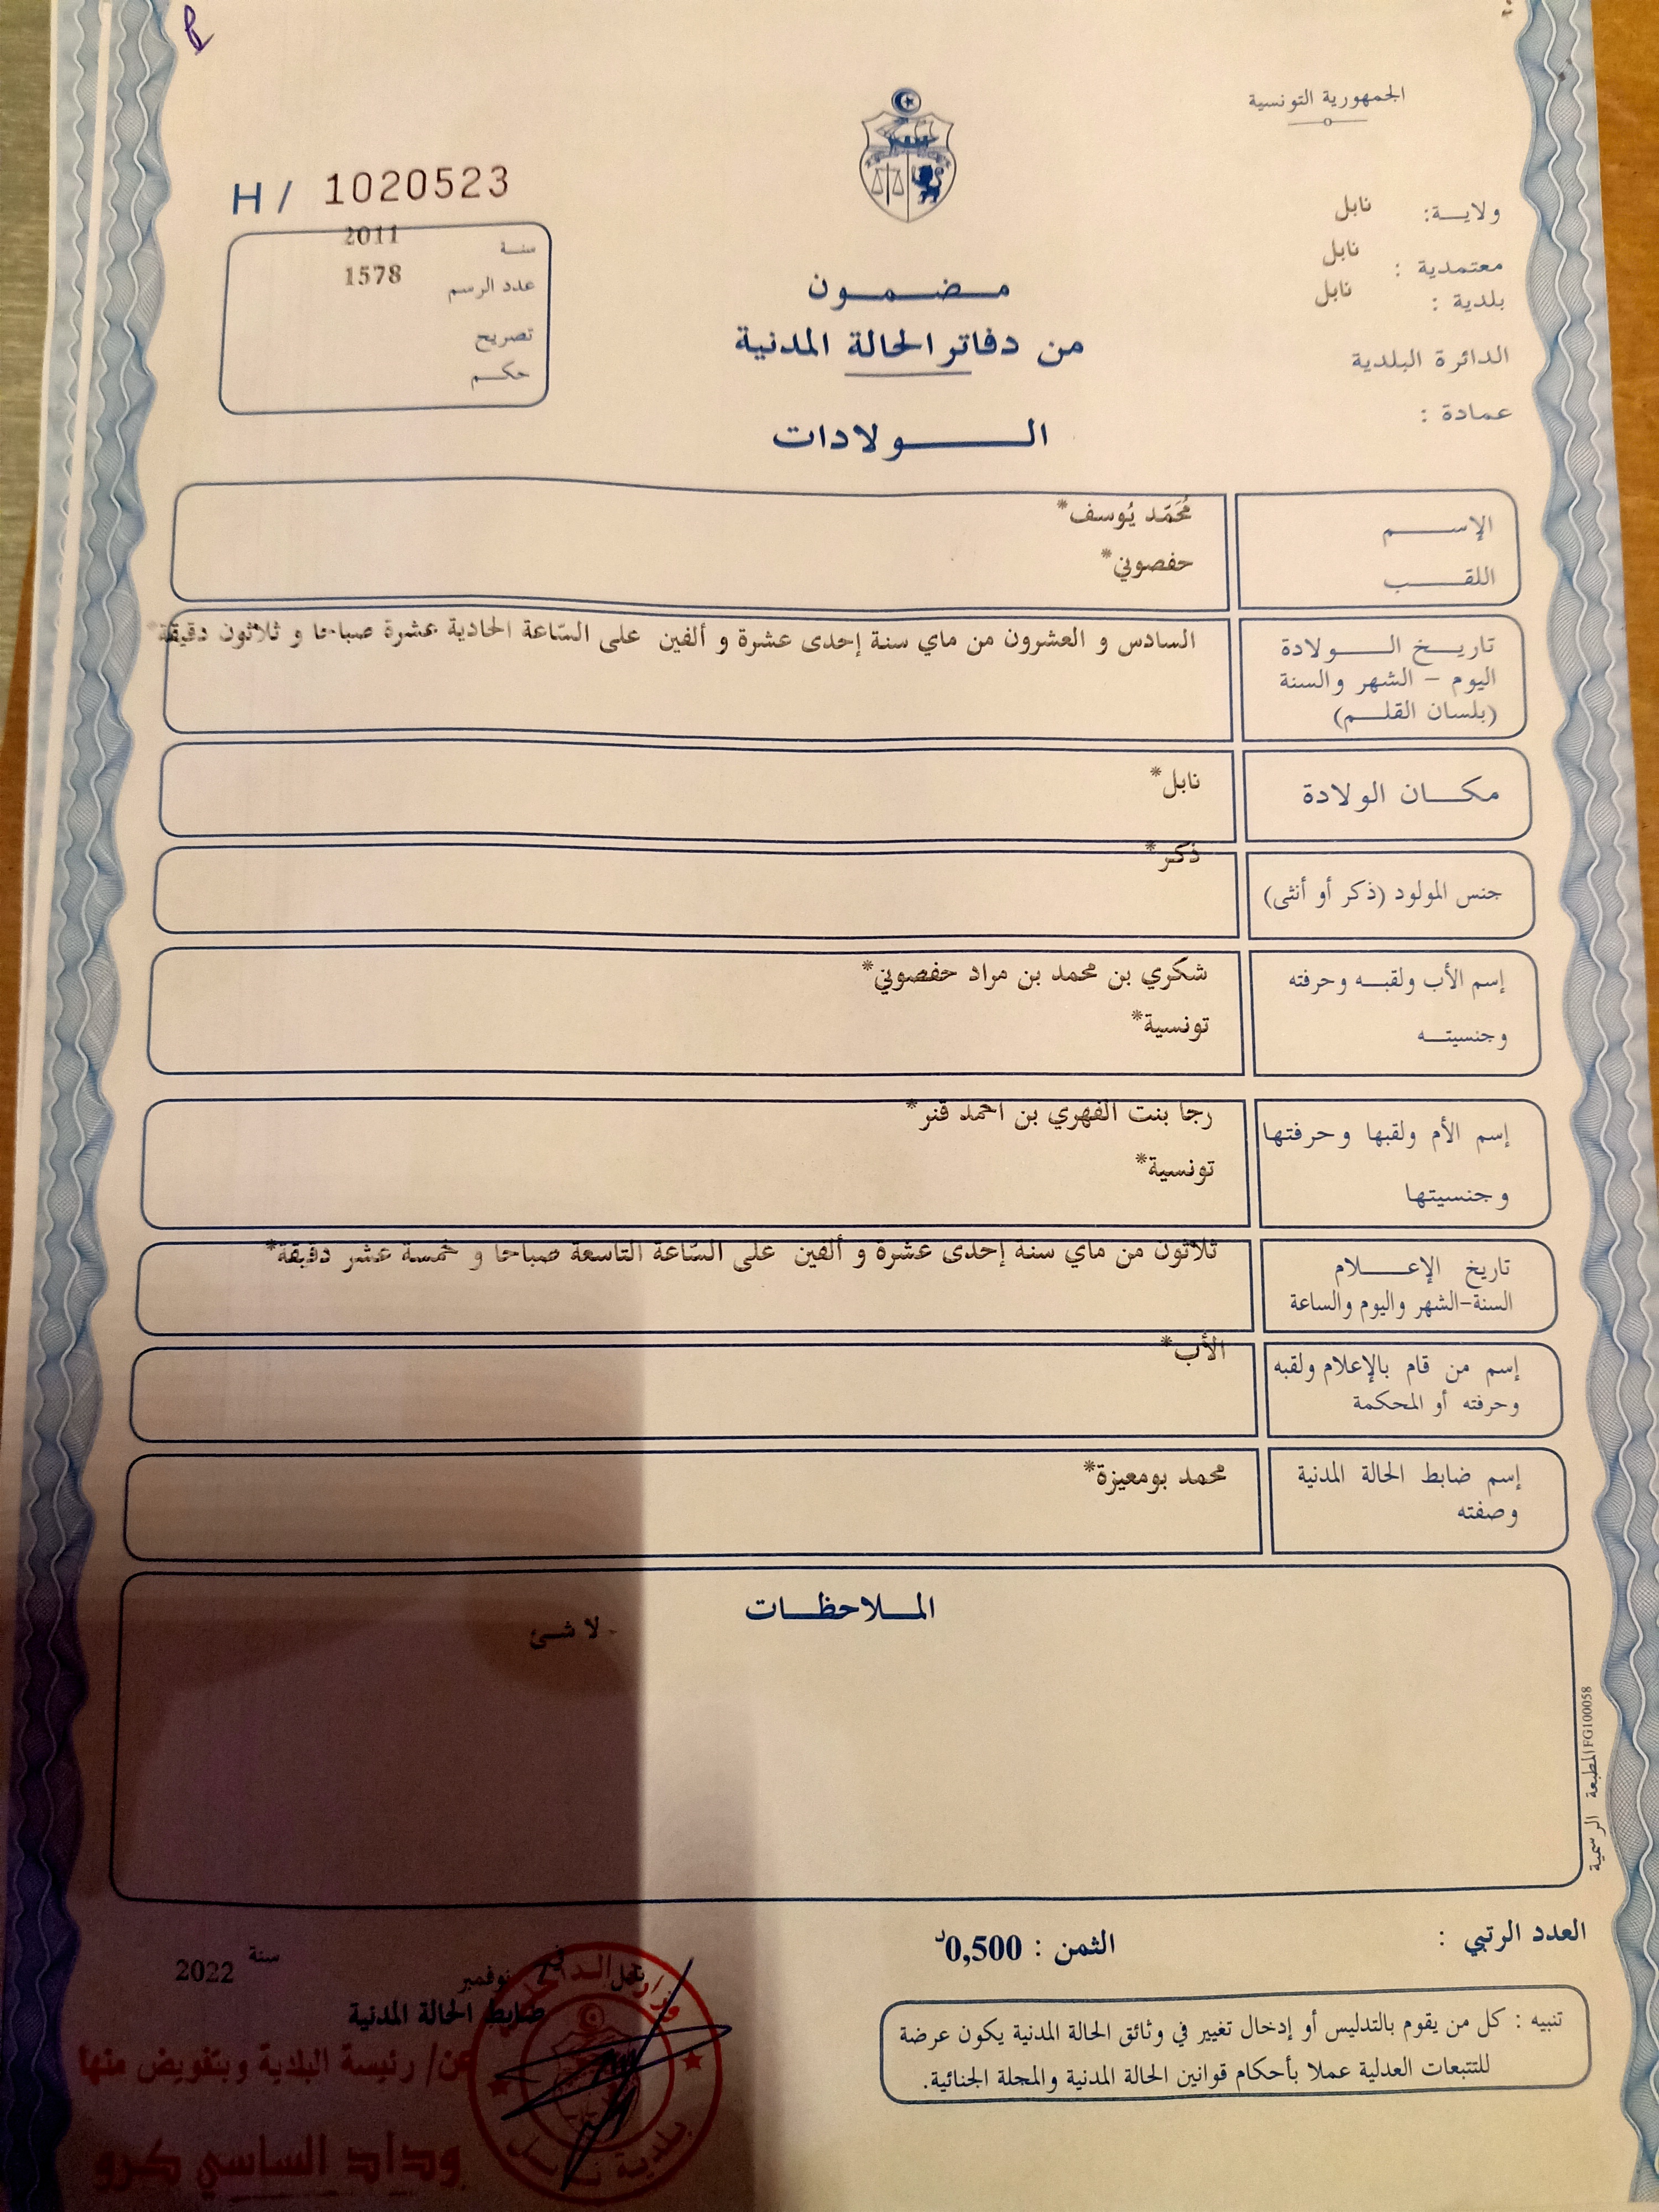 الجمهورية التونسية
ولاية: نابل
معتمدية : نابل
بلدية : نابل
الدائرة البلدية
عمادة :
H / 1020523
سنة 2011
عدد الرسم 1578
تصريح
حكم
مضمون
من دفاتر الحالة المدنية
الولادات
الإسم مُحَمّد يُوسف*
اللقب حفصوني*
تاريخ الولادة السادس و العشرون من ماي سنة إحدى عشرة و ألفين على السّاعة الحادية عشرة صباحا و ثلاثون دقيقة*
اليوم – الشهر والسنة
(بلسان القلم)
مكان الولادة نابل*
جنس المولود (ذكر أو أنثى) ذكر*
إسم الأب ولقبه وحرفته شكري بن محمد بن مراد حفصوني*
وجنسيته تونسية*
إسم الأم ولقبها وحرفتها رجا بنت الفهري بن احمد قنر*
وجنسيتها تونسية*
تاريخ الإعلام ثلاثون من ماي سنة إحدى عشرة و ألفين على السّاعة التاسعة صباحا و خمسة عشر دقيقة*
السنة-الشهر واليوم والساعة
إسم من قام بالإعلام ولقبه الأب*
وحرفته أو المحكمة
إسم ضابط الحالة المدنية محمد بومعيزة*
وصفته
الملاحظات
- لا شئ
المطبعة الرسمية FG100058
العدد الرتبي :
الثمن : 0,500د
نابل في نوفمبر سنة 2022
ضابط الحالة المدنية
عن/ رئيسة البلدية وبتفويض منها
وداد الساسي كرو
وزارة الداخلية
بلدية نابل
تنبيه : كل من يقوم بالتدليس أو إدخال تغيير في وثائق الحالة المدنية يكون عرضة
للتتبعات العدلية عملا بأحكام قوانين الحالة المدنية والمجلة الجنائية.